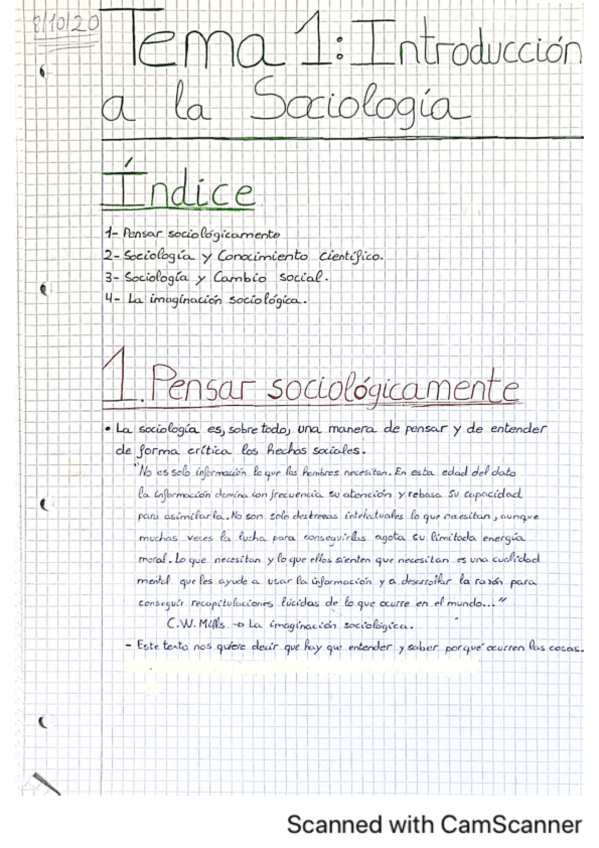 8/10/20
Tema 1: Introducción
a la Sociología
Índice
1- Pensar sociológicamente
2- Sociología y Conocimiento científico.
3- Sociología y Cambio social.
4- La imaginación sociológica.
1. Pensar sociológicamente
• La sociología es, sobre todo, una manera de pensar y de entender
de forma crítica los hechos sociales.
"No es solo información lo que los hombres necesitan. En esta edad del dato
la información domina con frecuencia su atención y rebasa su capacidad
para asimilarla. No son solo destrezas intelectuales lo que necesitan, aunque
muchas veces la lucha para conseguirlas agota su limitada energía
moral. Lo que necesitan y lo que ellos sienten que necesitan es una cualidad
mental que les ayude a usar la información y a desarrollar la razón para
conseguir recapitulaciones lúcidas de lo que ocurre en el mundo..."
C.W. Mills → La imaginación sociológica.
- Este texto nos quiere decir que hay que entender y saber porqué ocurren las cosas.
Scanned with CamScanner